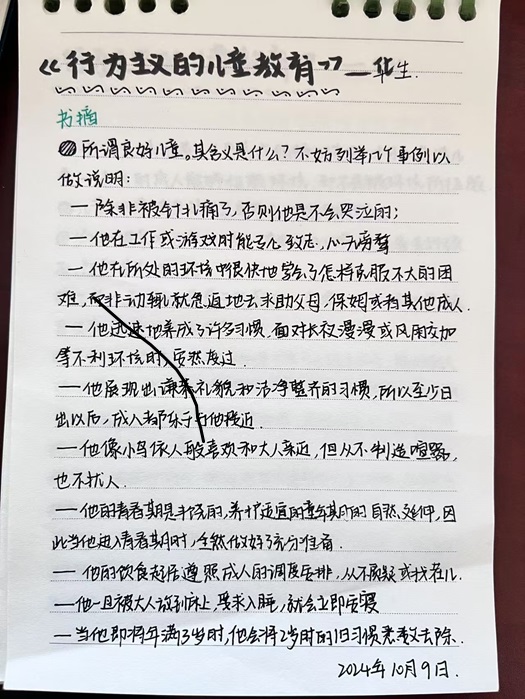 《行为主义的儿童教育》—华生.
书摘
所谓良好儿童。其含义是什么？不妨列举几个事例以
做说明：
—除非被针扎痛了，否则他是不会哭泣的；
—他在工作或游戏时能专心致志，心无旁骛
—他在所处的环境中很快地学会了怎样克服不大的困
难，而非动辄就急迫地去求助父母，保姆或者其他成人.
—他迅速地养成了许多习惯，面对长夜漫漫或风雨交加
等不利环境时，安然度过.
—他展现出谦恭礼貌和洁净整齐的习惯，所以至少日
出以后，成人都乐于与他接近.
—他像小鸟依人般喜欢和大人亲近，但从不制造喧嚣，
也不扰人.
—他的青春期是半饱的，养护适宜的童年期的自然延伸，因
此当他进入青春期时，全然做好了充分准备.
—他的饮食起居遵照成人的调度安排，从不质疑或找茬儿.
—他一旦被大人放到床上，要求入睡，就会立即安寝
—当他即将年满3岁时，他会将2岁时的旧习惯悉数去除.
2024年10月9日.